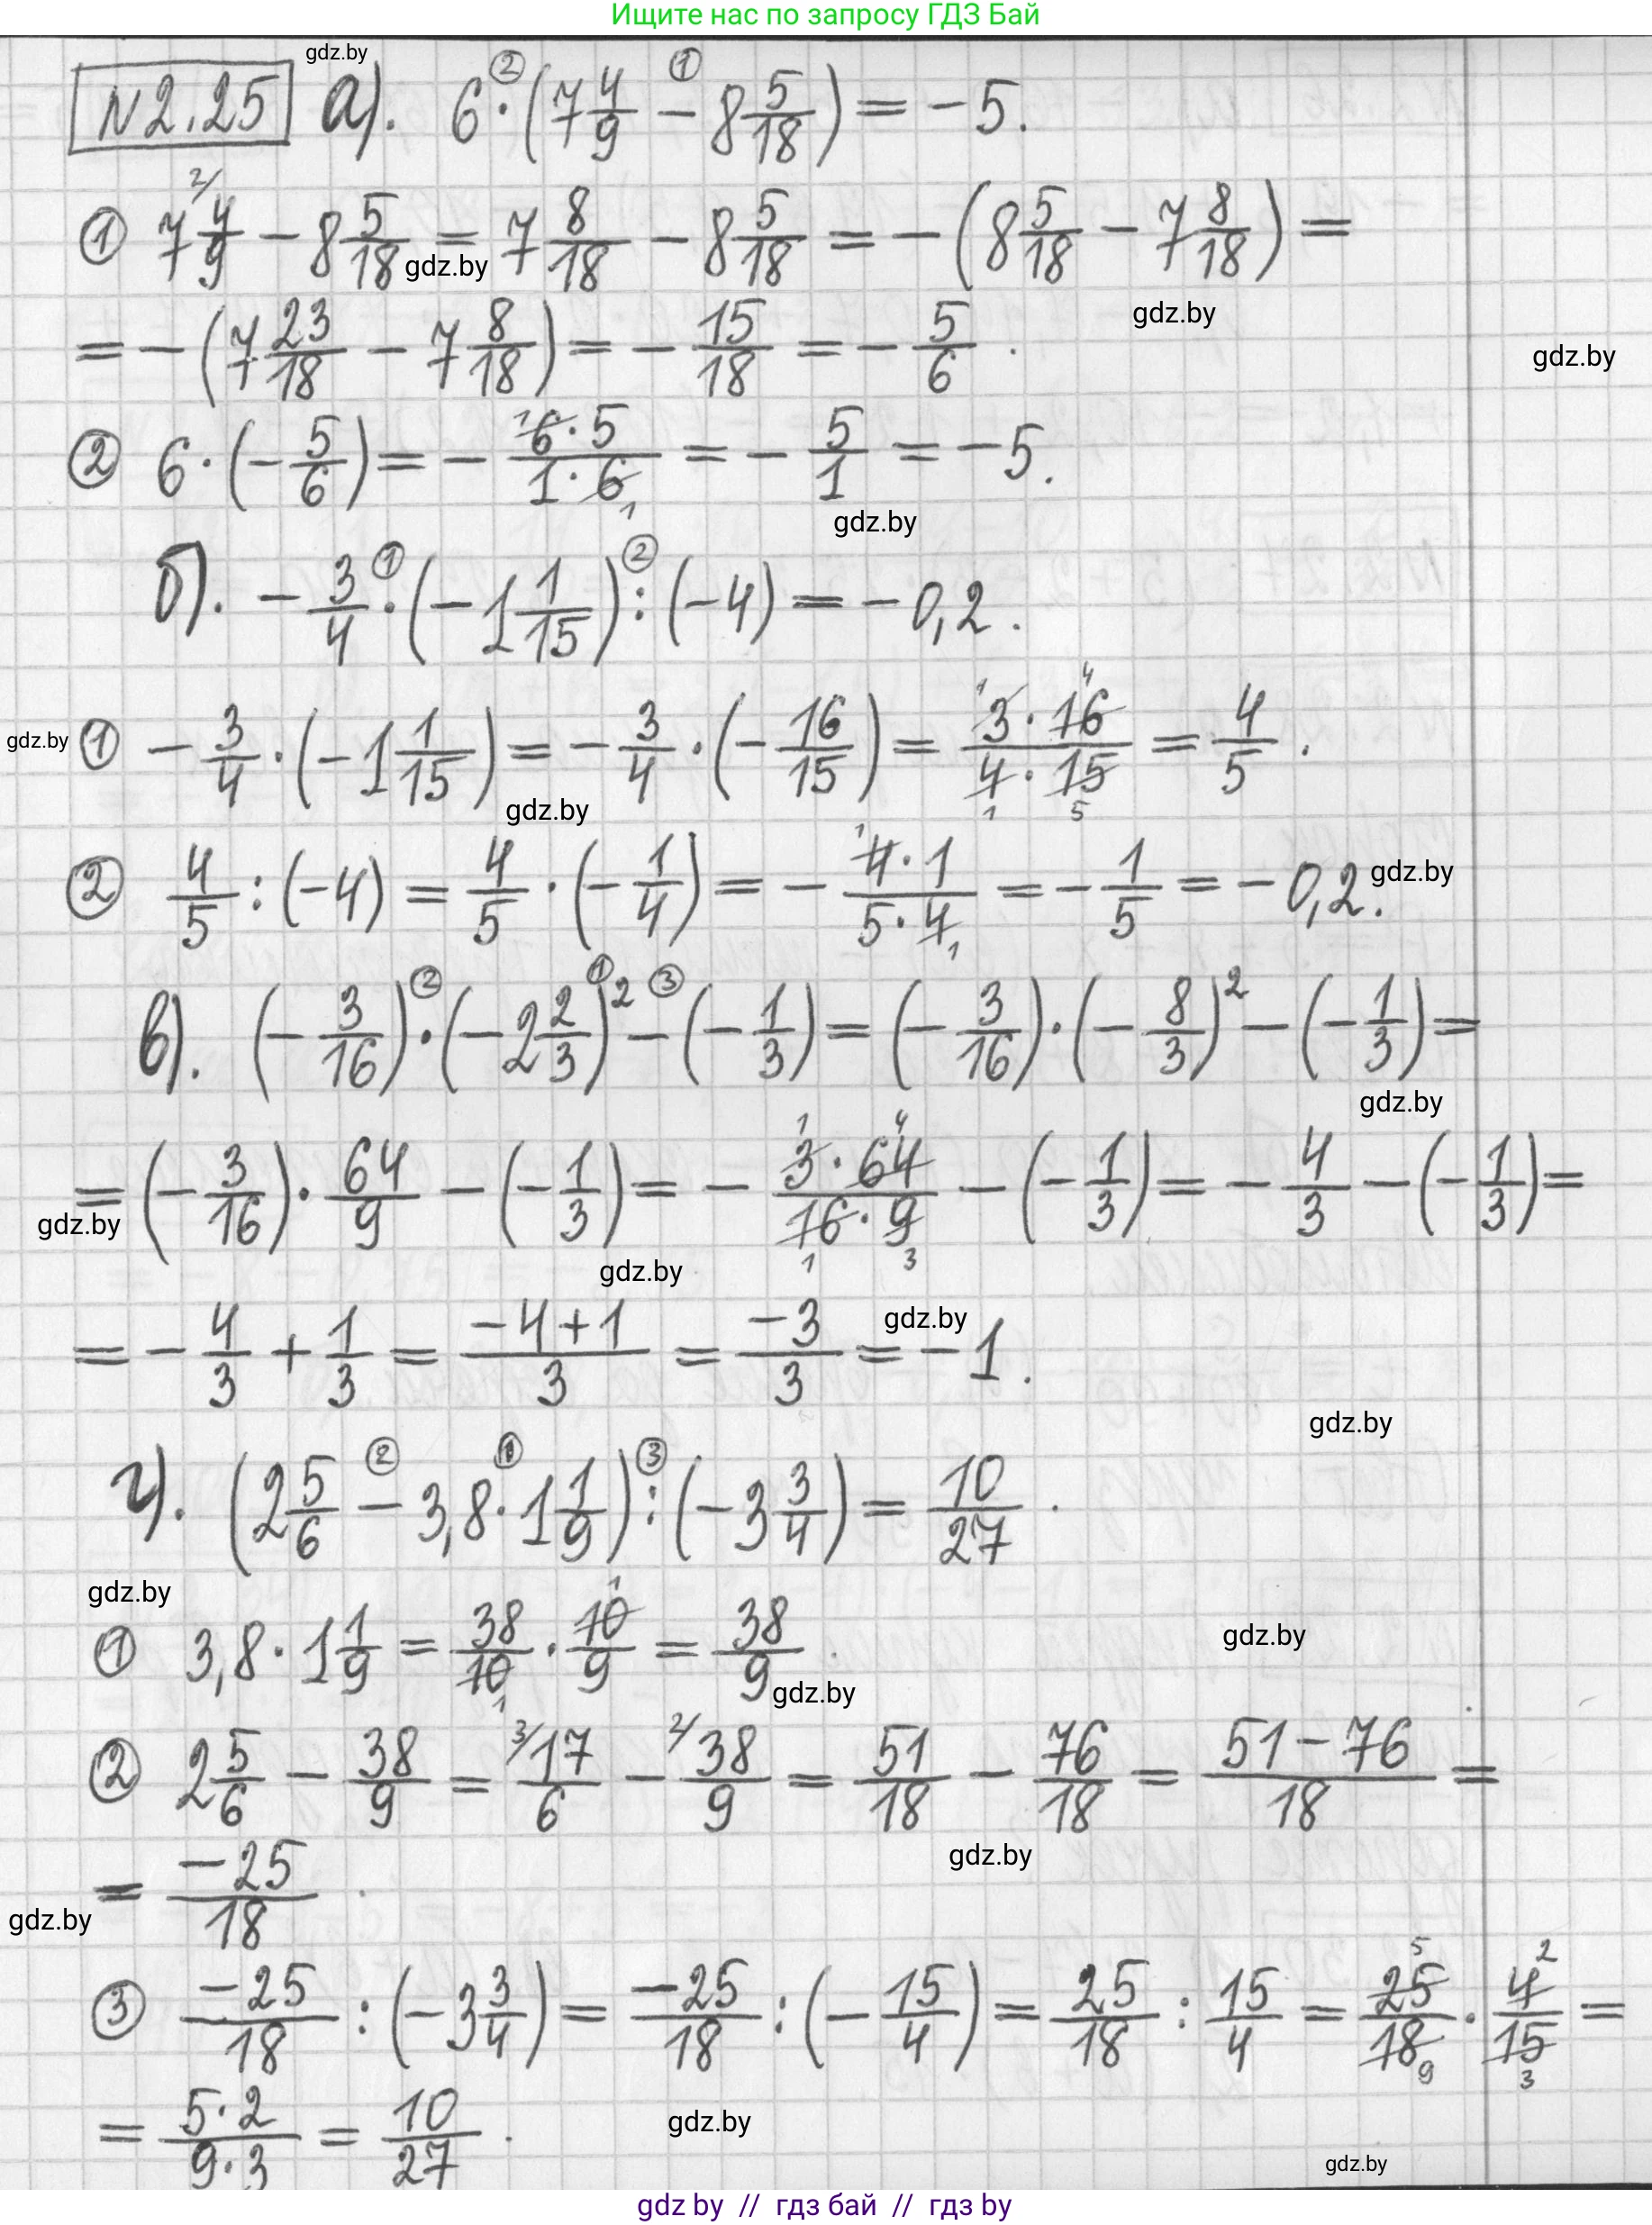 Ищите нас по запросу ГДЗ Бай
gdz.by
№2.25 а). 6 ·② (7 4/9 −① 8 5/18) = −5.
① 7 4/9 ²⁄ − 8 5/18 = 7 8/18 − 8 5/18 = −(8 5/18 − 7 8/18) =
gdz.by
gdz.by
= −(7 23/18 − 7 8/18) = − 15/18 = − 5/6.
gdz.by
② 6 · (− 5/6) = − 6·5/1·6 = − 5/1 = −5.
gdz.by
б). − 3/4 ·① (−1 1/15) :② (−4) = −0,2.
gdz.by ① − 3/4 · (−1 1/15) = − 3/4 · (− 16/15) = 3·16/4·15 = 4/5.
gdz.by
② 4/5 : (−4) = 4/5 · (− 1/4) = − 4·1/5·4 = − 1/5 = −0,2. gdz.by
в). (− 3/16) ·② (−2 2/3)² ① −③ (− 1/3) = (− 3/16) · (− 8/3)² − (− 1/3) =
gdz.by
= (− 3/16) · 64/9 − (− 1/3) = − 3·64/16·9 − (− 1/3) = − 4/3 − (− 1/3) =
gdz.by
gdz.by
gdz.by
= − 4/3 + 1/3 = −4+1/3 = −3/3 = −1.
gdz.by
г). (2 5/6 −② 3,8 ·① 1 1/9) :③ (−3 3/4) = 10/27.
gdz.by
① 3,8 · 1 1/9 = 38/10 · 10/9 = 38/9.
gdz.by
gdz.by
② 2 5/6 − 38/9 = ³⁄ 17/6 − ²⁄ 38/9 = 51/18 − 76/18 = 51−76/18 =
gdz.by
= −25/18.
gdz.by
③ −25/18 : (−3 3/4) = −25/18 : (− 15/4) = 25/18 : 15/4 = 25/18 · 4/15 =
= 5·2/9·3 = 10/27.
gdz.by
gdz.by
gdz by // гдз бай // гдз by